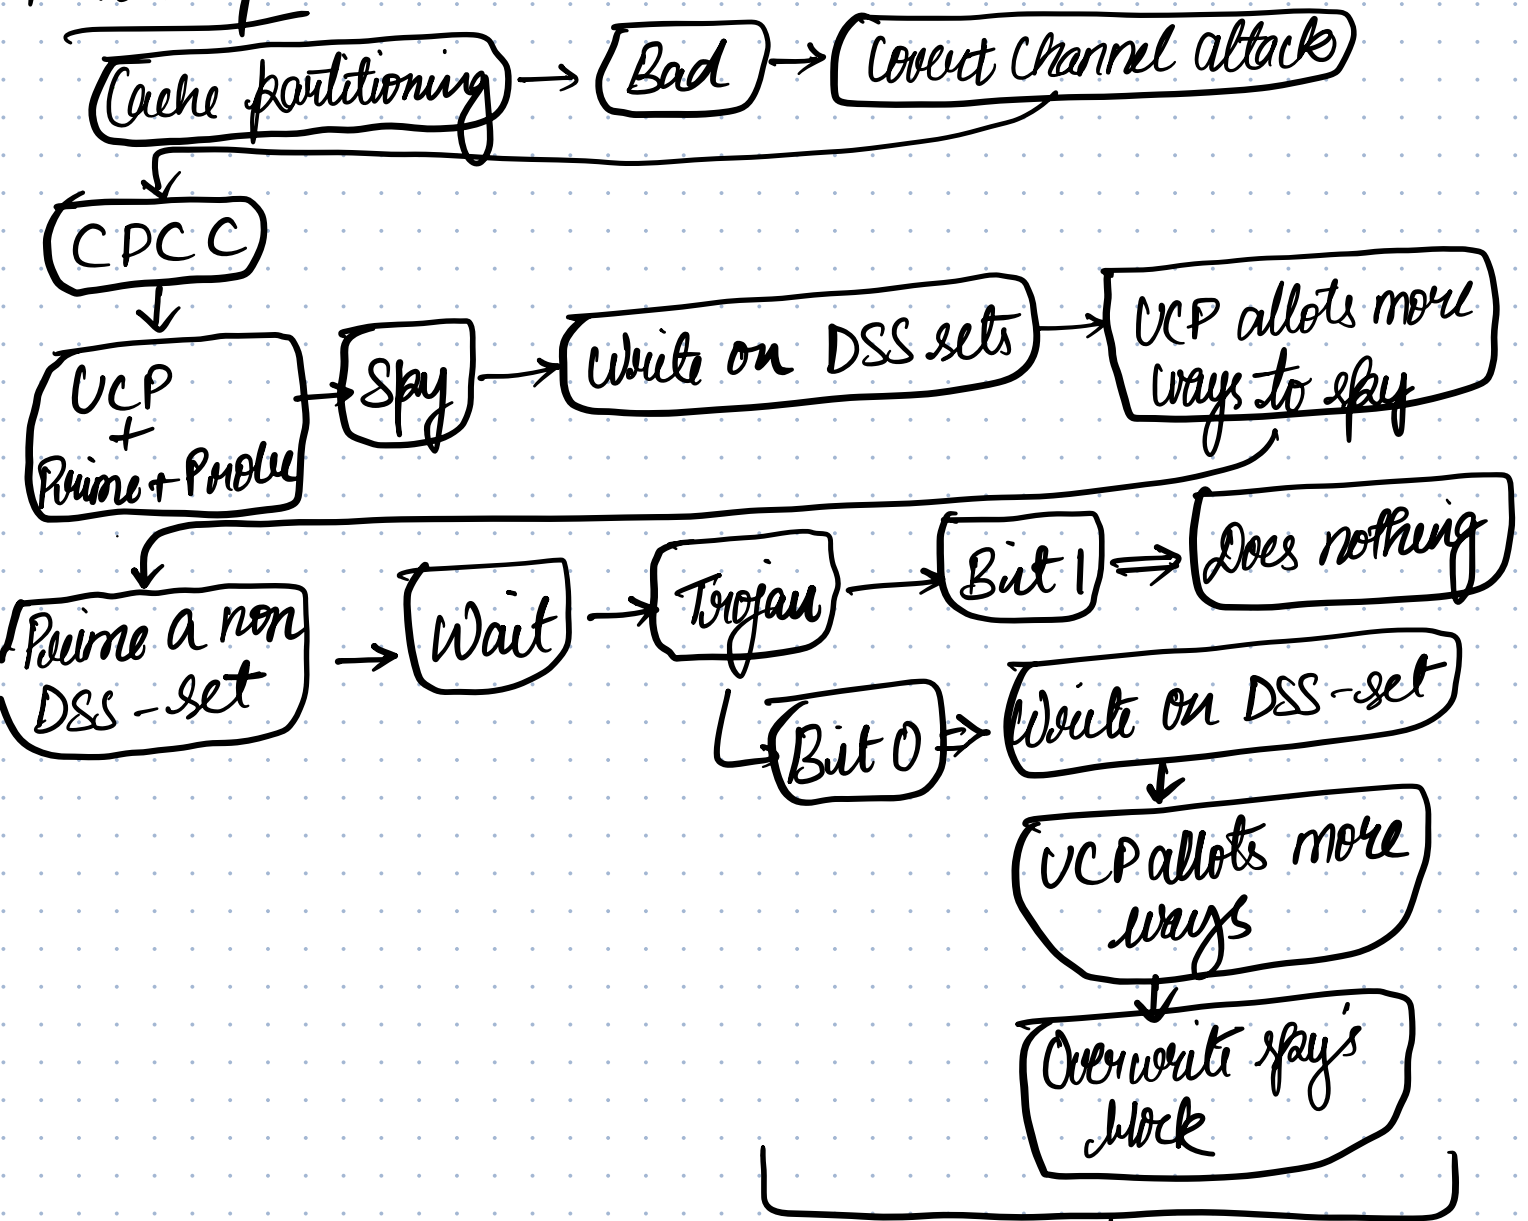 Cache partitioning
Bad
Covert channel attack
CPCC
UCP
+
Prime + Probe
Spy
Write on DSS sets
UCP allots more
ways to spy
Prime a non
DSS - set
Wait
Trojan
Bit 1
Does nothing
Bit 0
Write on DSS-set
UCP allots more
ways
Overwrite spy's
block